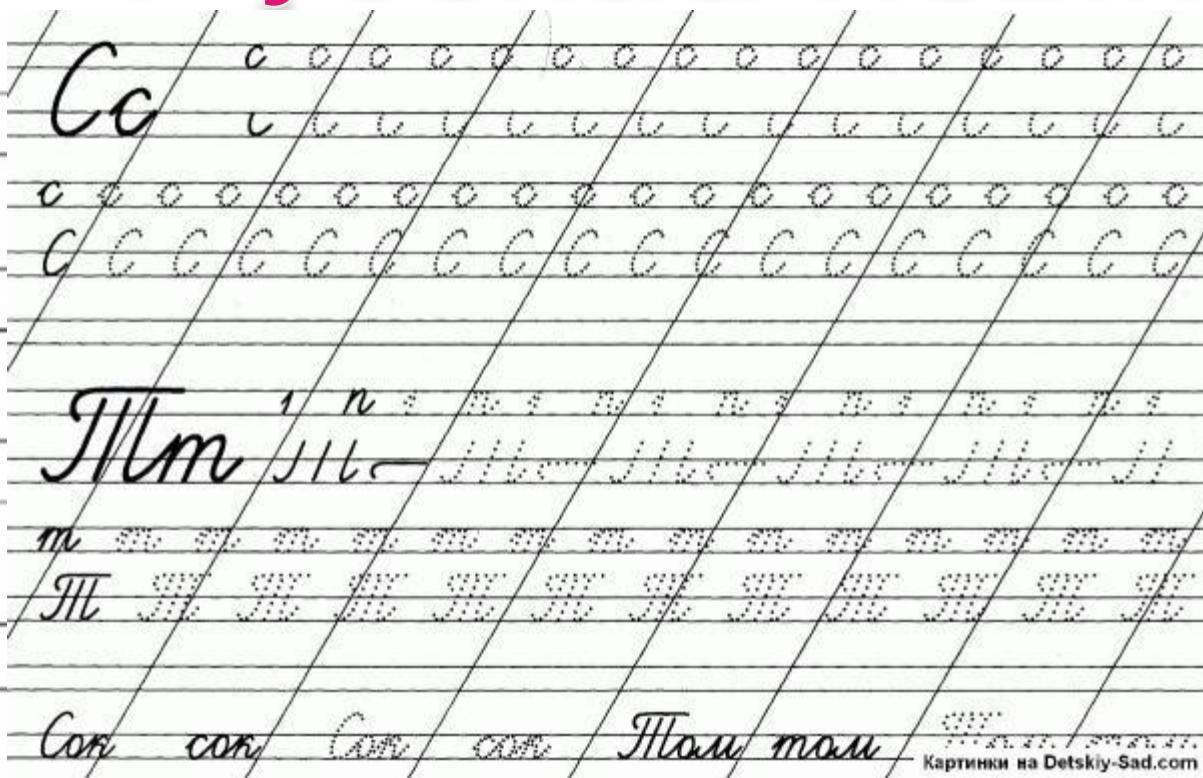 Сс с с с с с с с с с с с с с с с с
с с с с с с с с с с с с с с с с с с с с
С С С С С С С С С С С С С С С С С С
Тт
т т т т т т т т т т т т т т т
Т Т Т Т Т Т Т Т Т Т Т Т
Сок сок Сок сок Том том Том том
Картинки на Detskiy-Sad.com